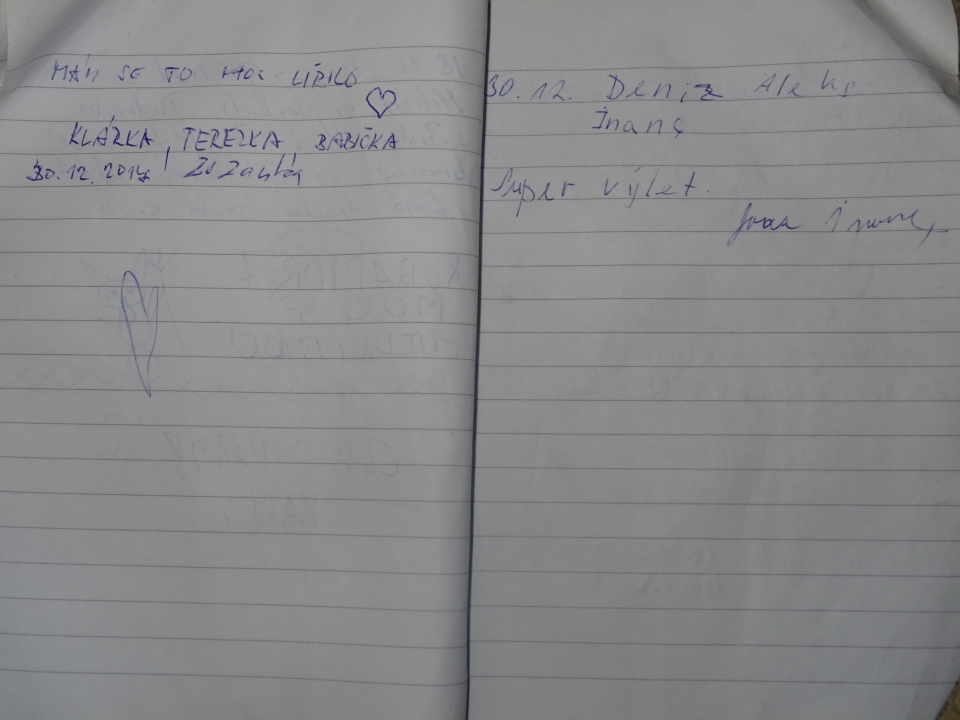 MÁM SE TO MOC LÍBILO
KLÁRKA, TEREZKA, BABIČKA
30.12.2017 Zuzanka
30.12. Deniz Aleks
İnanç
Super výlet.